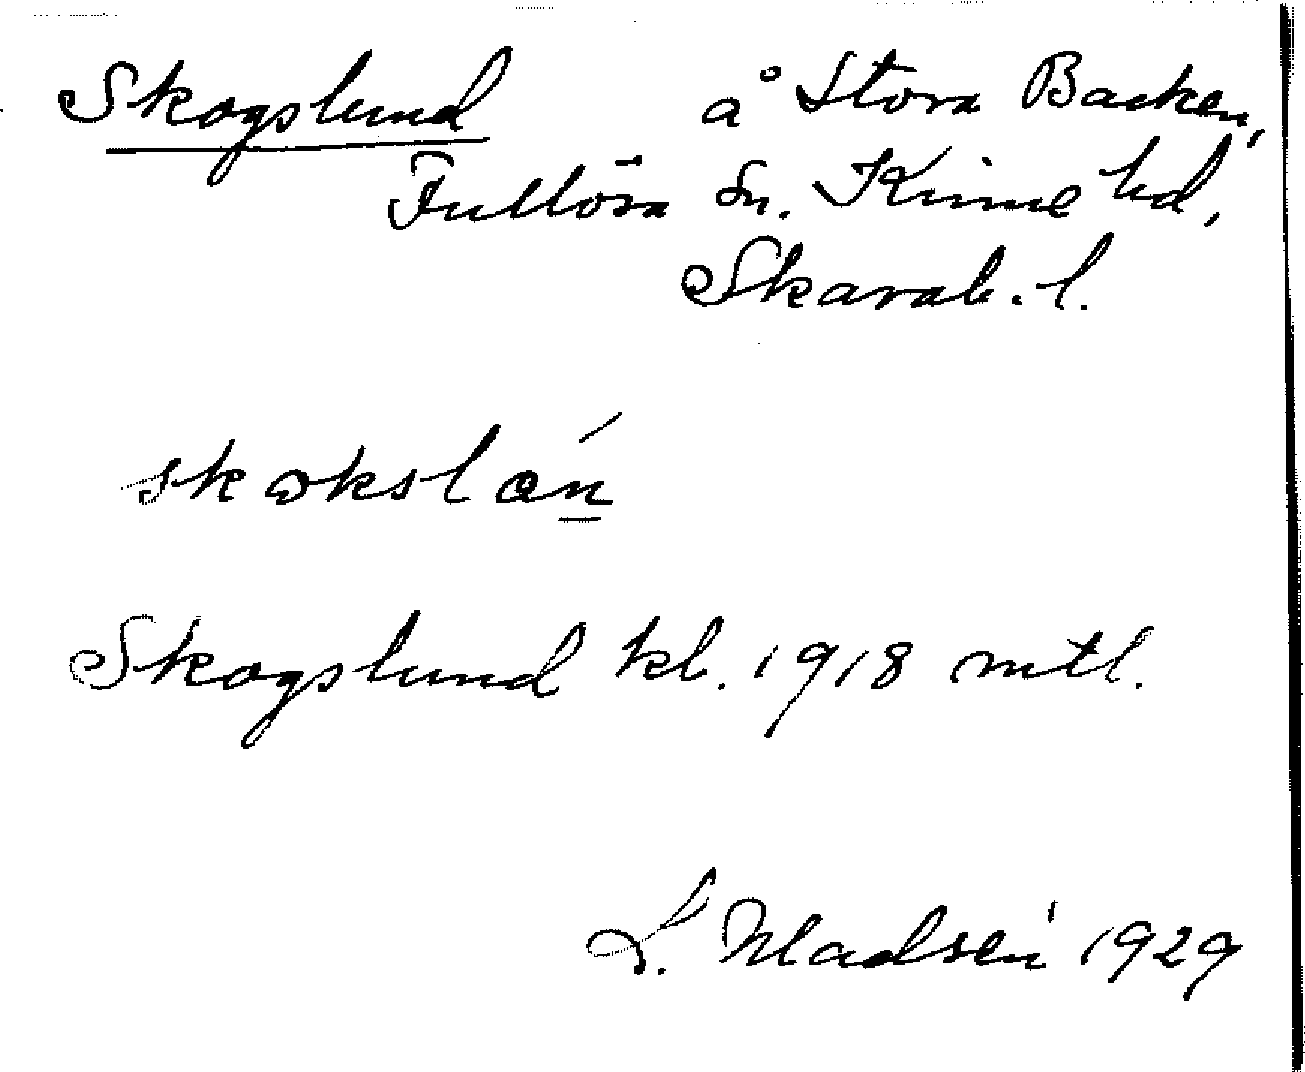 Skogslund å Stora Backen,
Fullösa sn. Kinne hd,
Skarab. l.
skokslán
Skogslund kl. 1918 mtl.
L. Madsén 1929